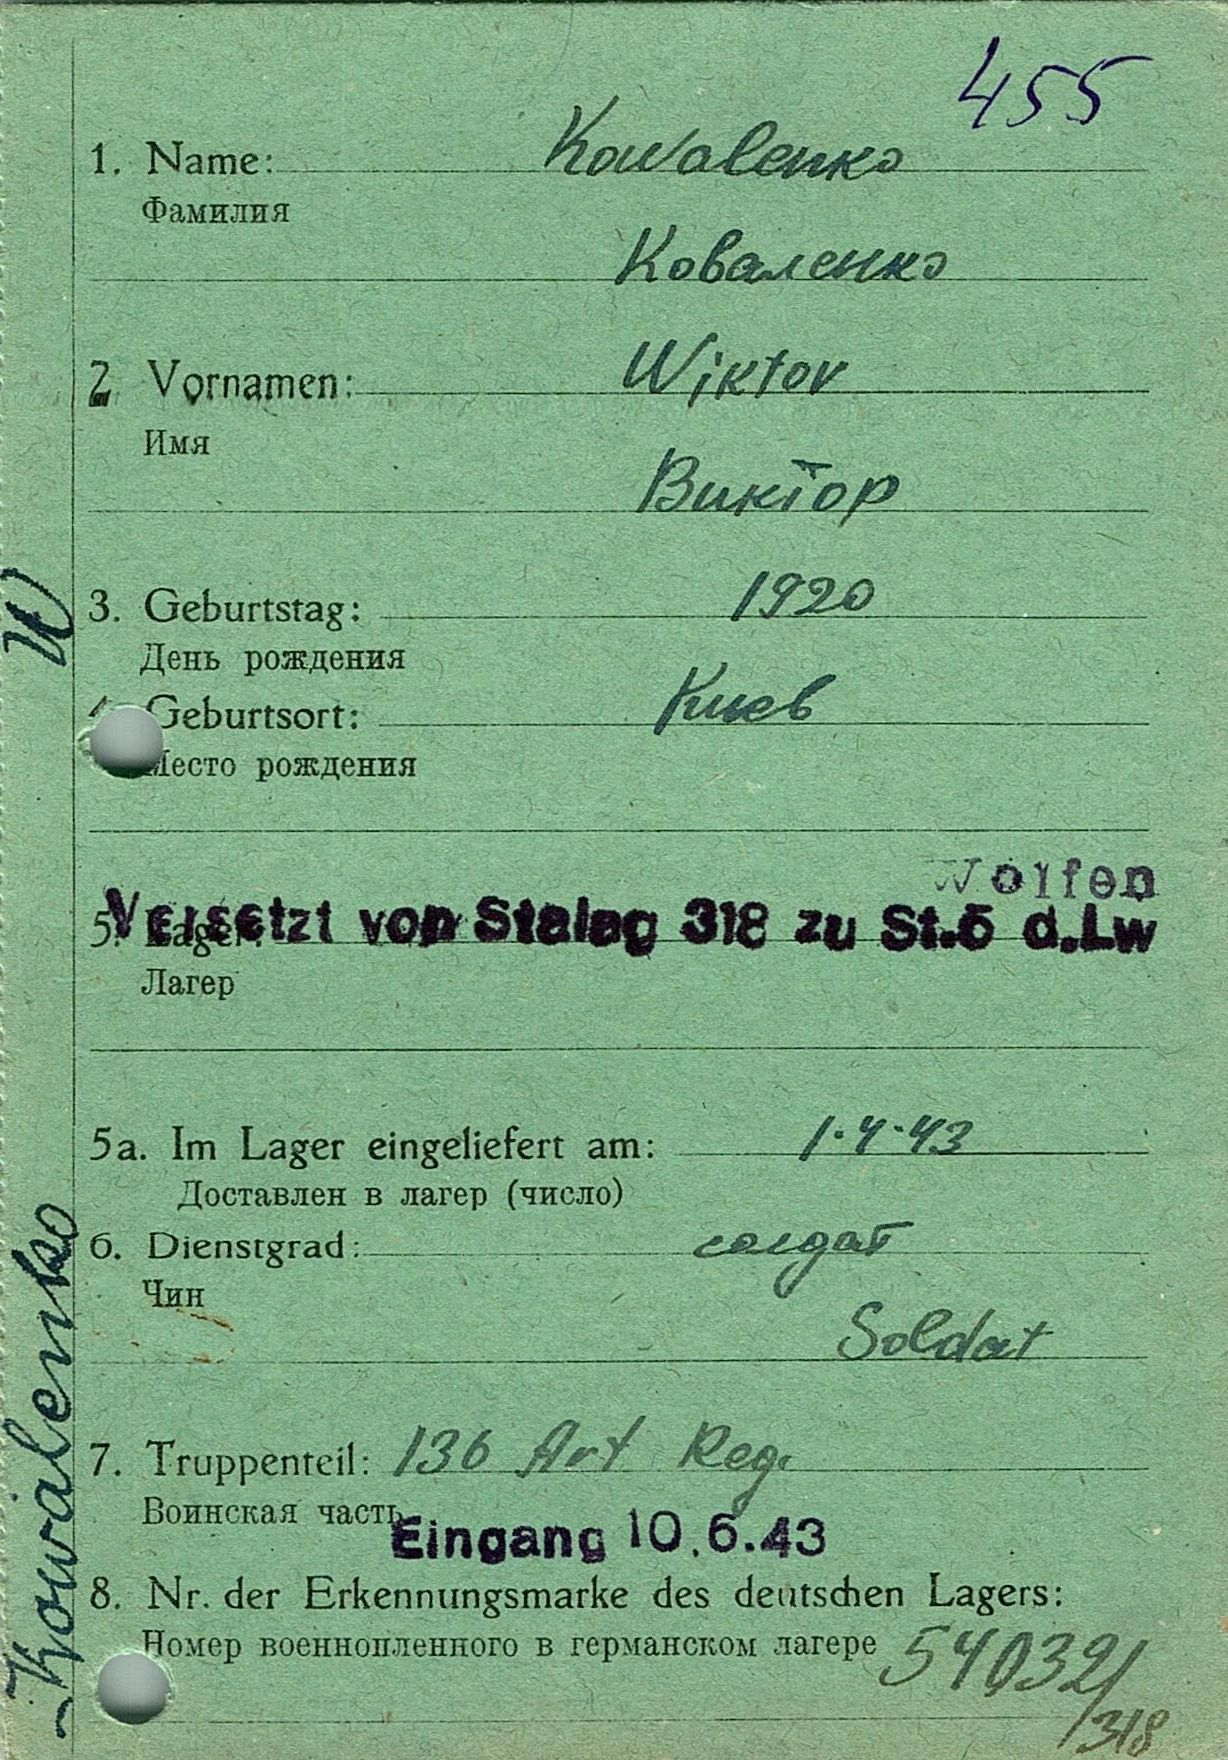 455
1. Name: Kowalenko
Фамилия
Коваленко
2. Vornamen: Wiktor
Имя
Виктор
3. Geburtstag: 1920
День рождения
Geburtsort: Киев
Место рождения
Wolfen
Versetzt von Stalag 318 zu St.6 d.Lw
5. Lager:
Лагер
5a. Im Lager eingeliefert am: 1.4.43
Доставлен в лагер (число)
6. Dienstgrad: солдат
Чин
Soldat
7. Truppenteil: 136 Art Reg.
Воинская часть
Eingang 10.6.43
8. Nr. der Erkennungsmarke des deutschen Lagers:
Номер военнопленного в германском лагере 54032/
318
Kowalenko
W